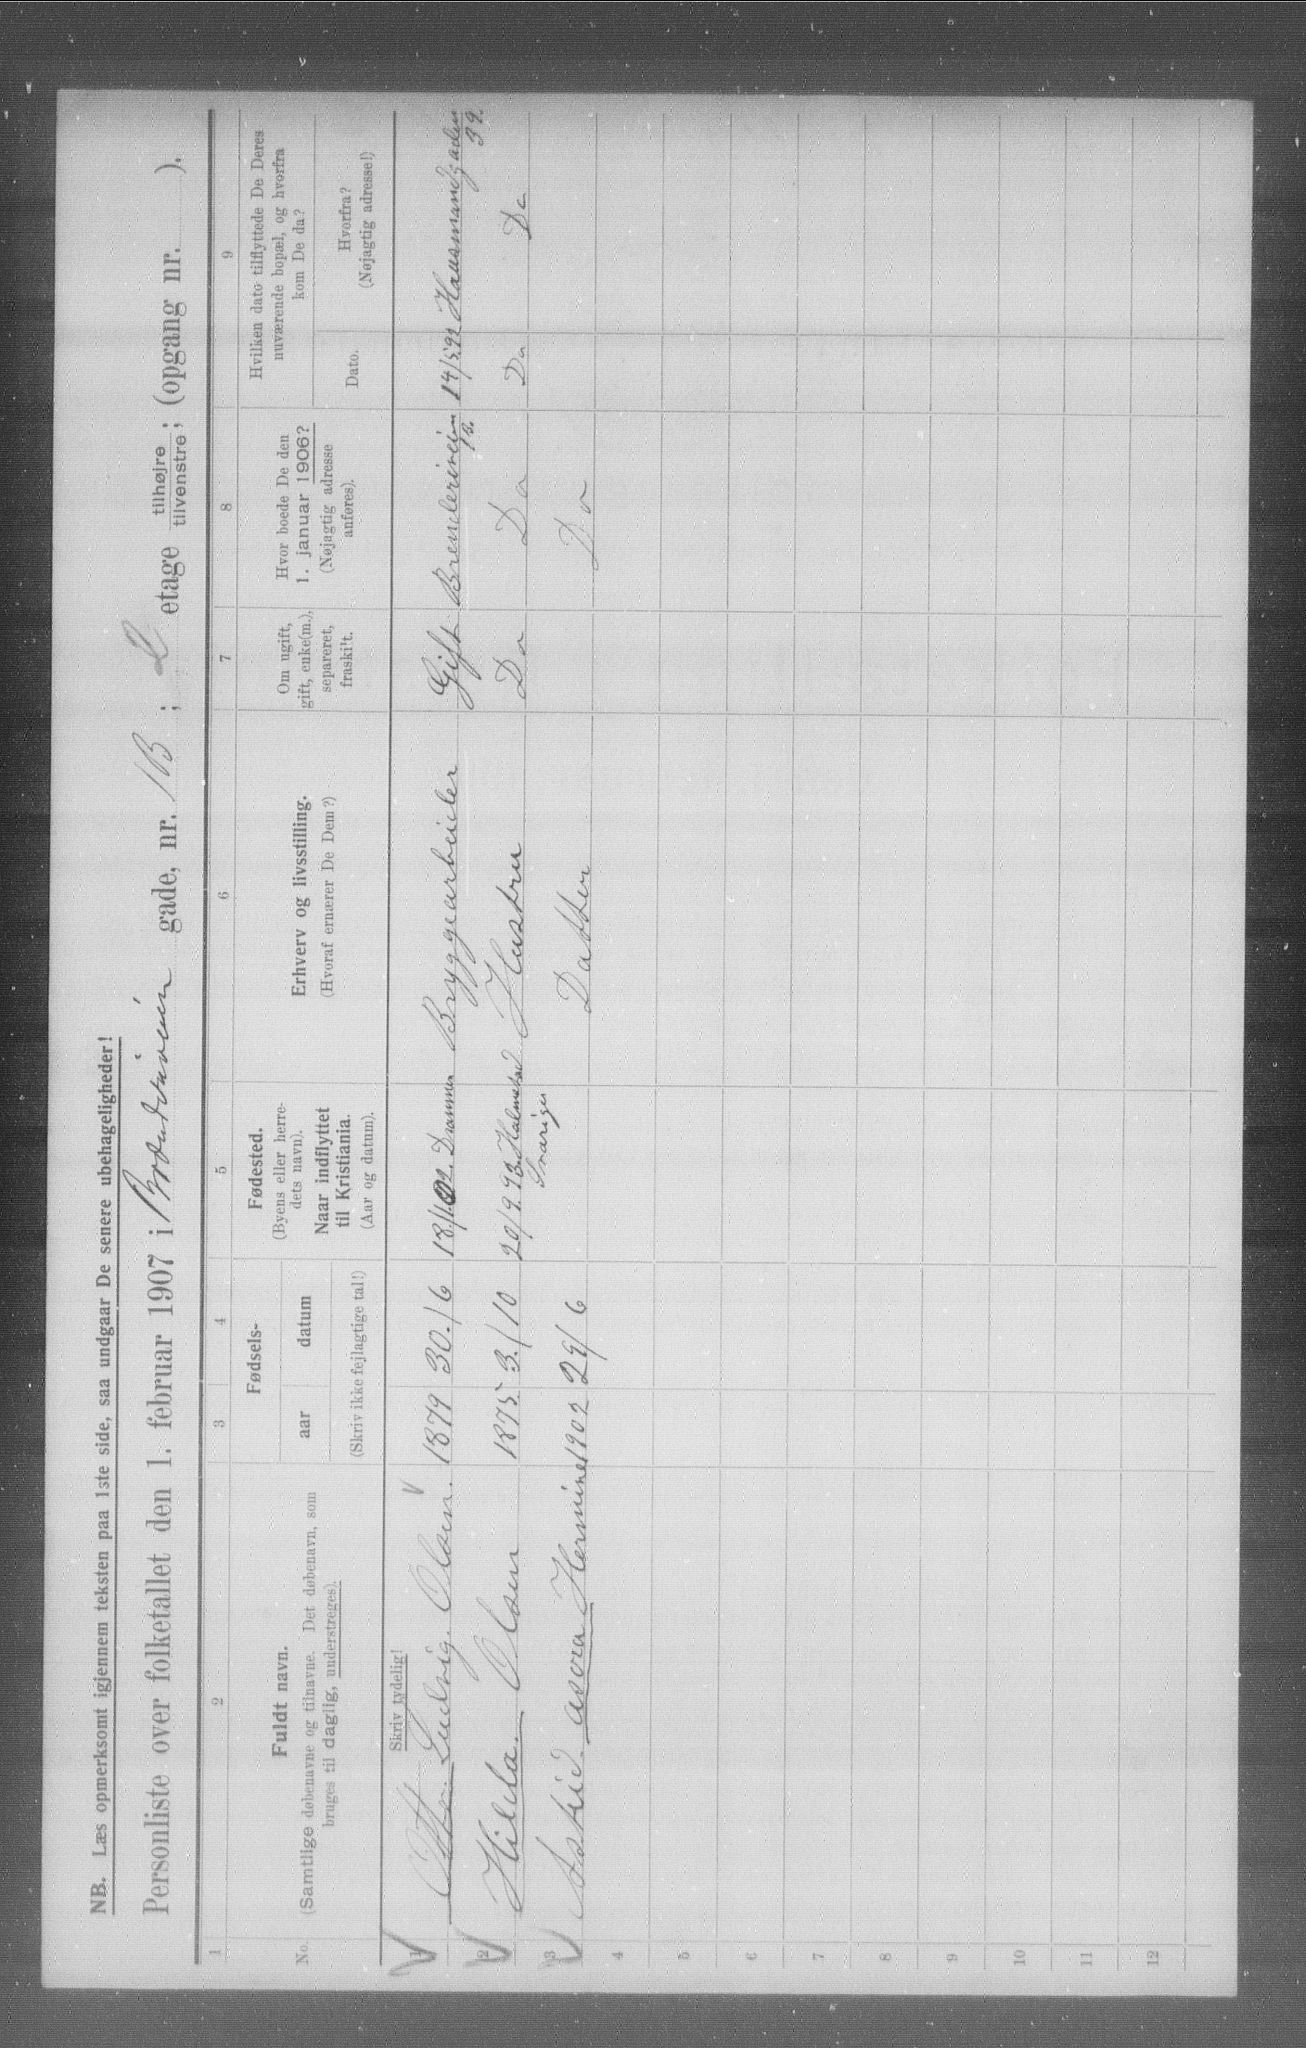 NB. Læs opmerksomt igjennem teksten paa 1ste side, saa undgaar De senere ubehageligheder!
Personliste over folketallet den 1. februar 1907 i gade, nr. 1B ; 2 etage tilhøjre tilvenstre; (opgang nr. ).
1 2 3 4 5 6 7 8 9
No.
Fuldt navn.
(Samtlige døbenavne og tilnavne. Det døbenavn, som
bruges til daglig, understreges).
Fødsels-
aar datum
(Skriv ikke fejlagtige tal!)
Fødested.
(Byens eller herre-
dets navn).
Naar indflyttet
til Kristiania.
(Aar og datum).
Erhverv og livsstilling.
(Hvoraf ernærer De Dem?)
Om ugift,
gift, enke(m.),
separeret,
fraskilt.
Hvor boede De den
1. januar 1906?
(Nøjagtig adresse
anføres).
Hvilken dato tilflyttede De Deres
nuværende bopæl, og hvorfra
kom De da?
Dato.
Hvorfra?
(Nøjagtig adresse!)
Skriv tydelig!
1 Otto Ludvig. Olsen. 1879 30./6 Drammen Bryggearbeider Gift 1B. Hausmandsgaden
39.
2 Hilda. Olsen 1875 3./10 Halmstad Hustru Do Do Do Do
Svarige
3 Astrid Hermine 1902 29/6 Datter Do
4
5
6
7
8
9
10
11
12